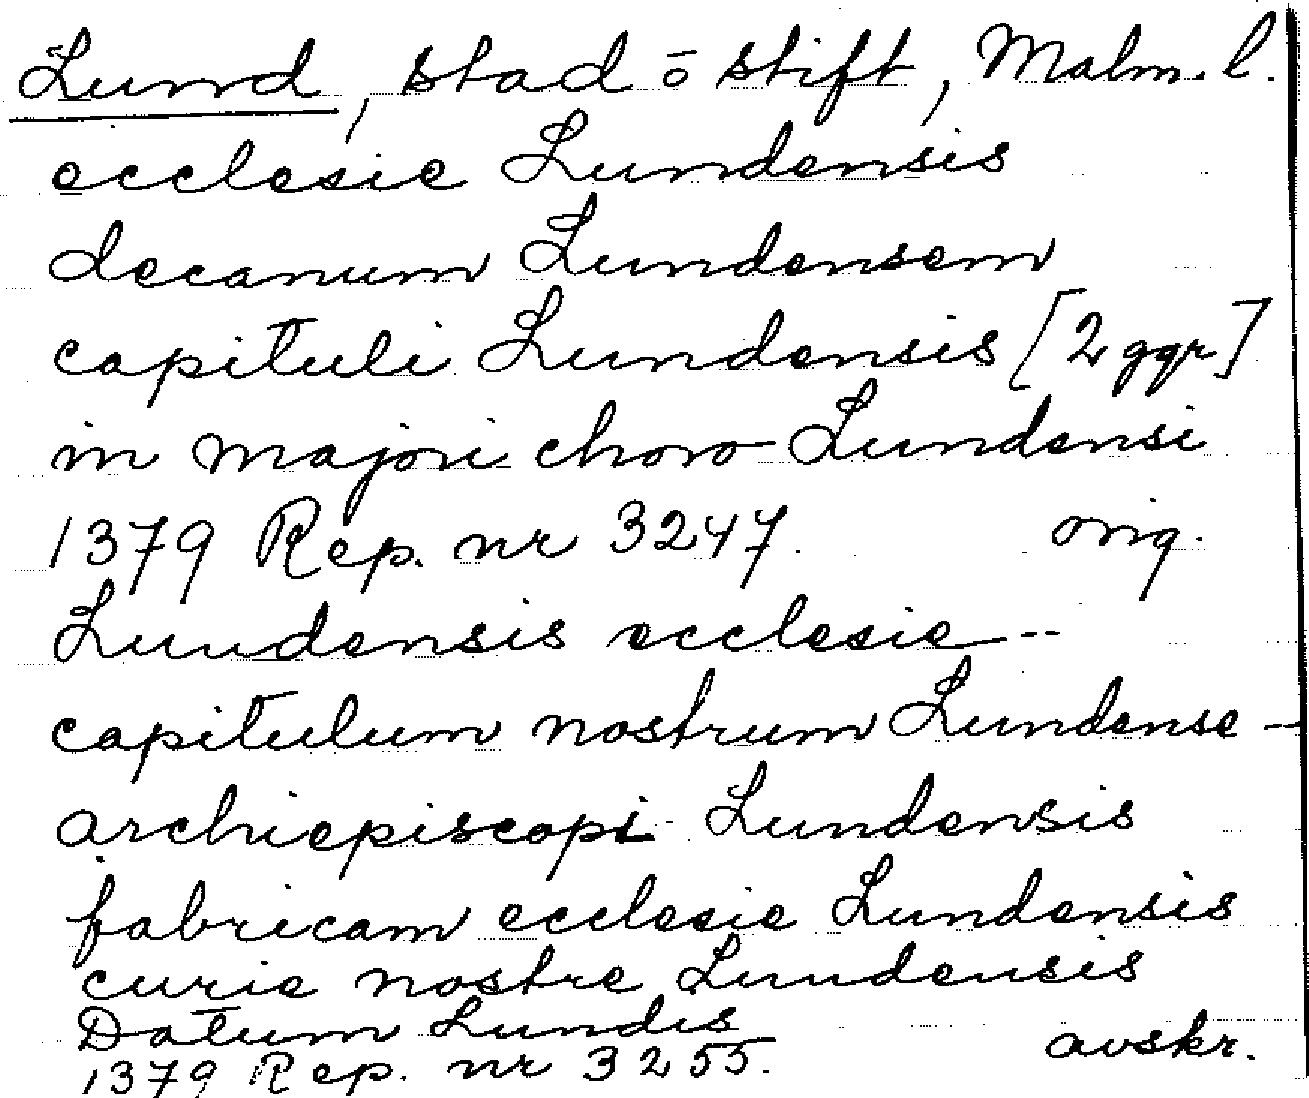 Lund, stad ō stift, Malm. l.
ecclesie Lundensis
decanum Lundensem
capituli Lundensis [2 ggr]
in majori choro Lundensi
1379 Rep. nr 3247. orig.
Lundensis ecclesie --
capitulum nostrum Lundense -
archiepiscopi Lundensis
fabricam ecclesie Lundensis
curie nostre Lundensis
Datum Lundis
1379 Rep. nr 3255. avskr.